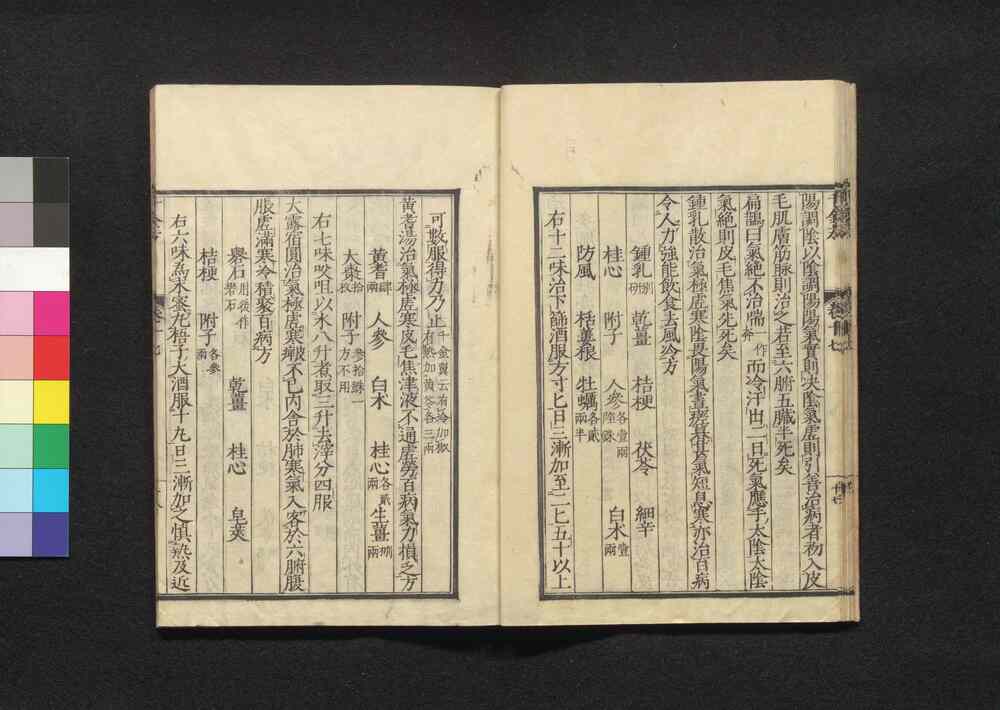 陽調陰以陰調陽陽氣實則決陰氣虛則引善治病者初入皮
毛肌膚筋脉則治之若至六腑五臟半死矣
扁鵲曰氣絶不治喘一作奔而冷汗出二日死氣應手太陰太陰
氣絶則皮毛焦氣先死矣
鍾乳散治氣極虛寒陰畏陽氣晝病暮甚氣短息寒亦治百病
令人力強能飲食去風冷方
鍾乳 乾薑 桔梗 茯苓 細辛
桂心 附子 人參各壹兩 白朮壹兩
防風 栝蔞根 牡蠣各貳兩半
右十二味治下篩酒服方寸匕日三漸加至二匕五十以上
可數服得力乃止
黃耆湯治氣極虛寒皮毛焦津液不通虛勞百病氣力損乏方
黃耆肆兩 人參 白朮 桂心各貳兩 生薑捌兩
大棗拾枚 附子
右七味㕮咀以水八升煮取三升去滓分四服
大露宿圓治氣極虛寒皮痹不已內舍於肺寒氣入客於六腑腹
脹虛滿寒冷積聚百病方
礜石 乾薑 桂心 皂莢
桔梗 附子各參兩
右六味為末蜜丸梧子大酒服十丸日三漸加之愼熱及近